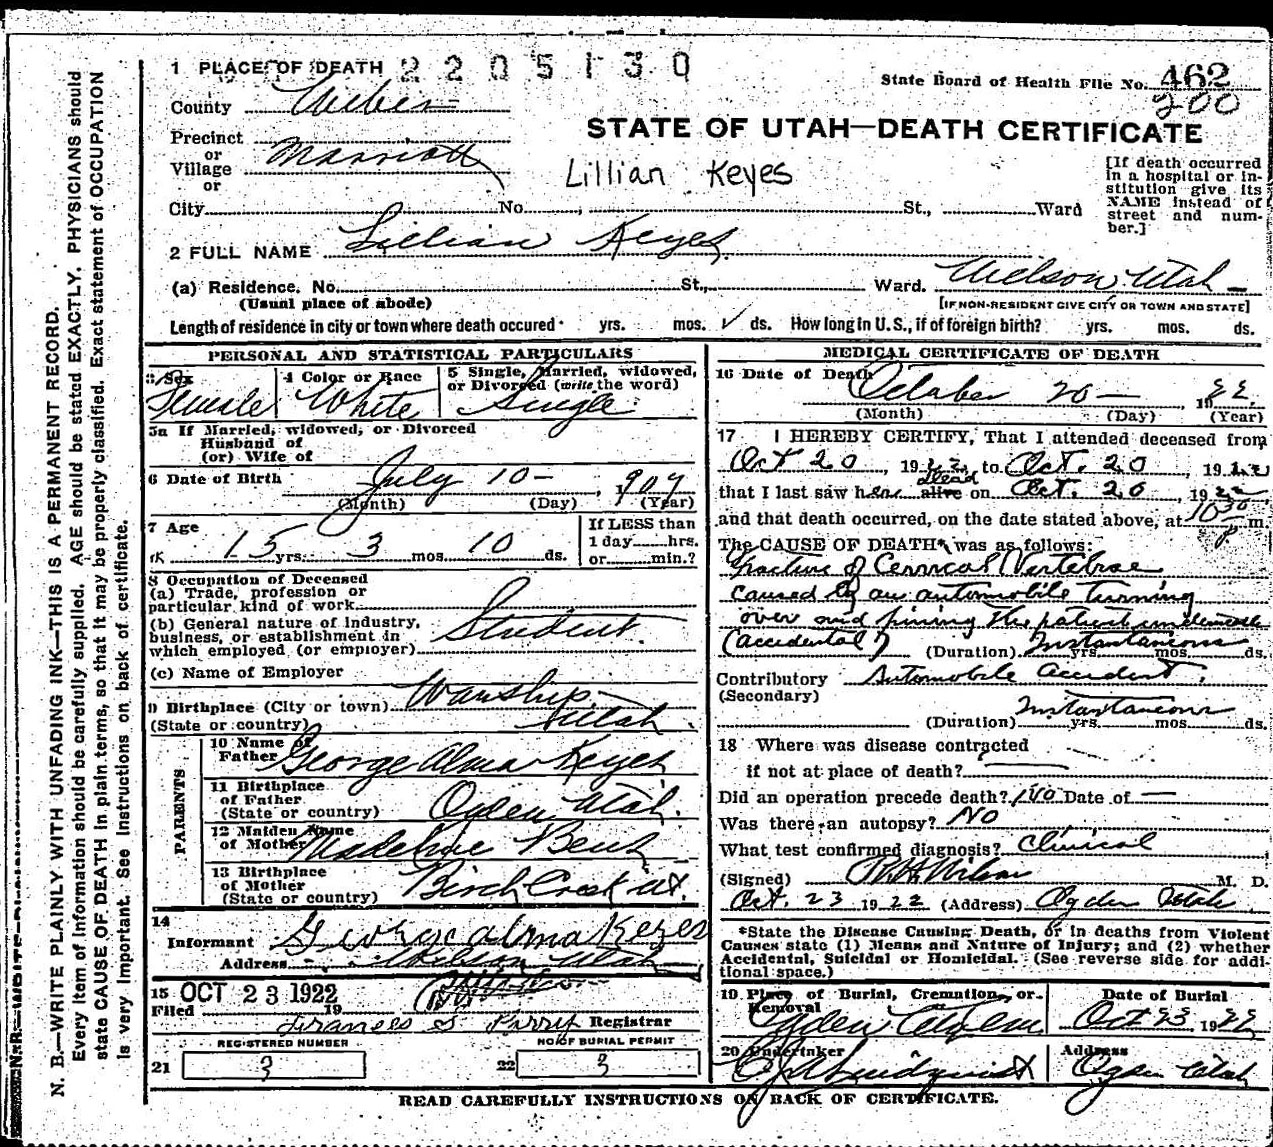 1 PLACE OF DEATH 2205130
State Board of Health File No. 462
200
County Weber
STATE OF UTAH—DEATH CERTIFICATE
Precinct
or
Village Marriott
or
Lillian Keyes
[If death occurred
in a hospital or in-
stitution give its
NAME instead of
street and num-
ber.]
City No. , St., Ward
2 FULL NAME Lillian Keyes
(a) Residence. No. St., Ward. Wilson Utah
(Usual place of abode)
[IF NON-RESIDENT GIVE CITY OR TOWN AND STATE]
Length of residence in city or town where death occured yrs. mos. ds. How long in U. S., if of foreign birth? yrs. mos. ds.
PERSONAL AND STATISTICAL PARTICULARS
3 Sex
Female
4 Color or Race
White
5 Single, Married, widowed,
or Divorced (write the word)
Single
5a If Married, widowed, or Divorced
Husband of
(or) Wife of
6 Date of Birth July 10 - , 1907
(Month) (Day) (Year)
7 Age
15 yrs. 3 mos. 10 ds.
If LESS than
1 day hrs.
or min.?
8 Occupation of Deceased
(a) Trade, profession or
particular kind of work
(b) General nature of industry,
business, or establishment in
which employed (or employer) Student
(c) Name of Employer
9 Birthplace (City or town) Wanship
(State or country) Utah
PARENTS
10 Name of
Father George Alma Keyes
11 Birthplace
of Father
(State or country) Ogden Utah.
12 Maiden Name
of Mother Madeline
13 Birthplace
of Mother
(State or country) Birch Creek Ut.
14
Informant George Alma Keyes
Address Wilson Utah
15
Filed OCT 23 1922 19
Frances S Parry Registrar
REGISTERED NUMBER
21 3
NO. OF BURIAL PERMIT
22 3
MEDICAL CERTIFICATE OF DEATH
16 Date of Death October 20 — , 1922.
(Month) (Day) (Year)
17 I HEREBY CERTIFY, That I attended deceased from
Oct 20 , 1922 to Oct. 20 , 1922
Dead
that I last saw her alive on Oct. 20 , 1922
and that death occurred, on the date stated above, at 10 30 p m.
The CAUSE OF DEATH* was as follows:
Fracture of Cervical Vertebrae
caused by an automobile turning
over and pining the patient underneath
(accidental) (Duration) Instantaneous yrs. mos. ds.
Contributory Automobile accident.
(Secondary)
(Duration) Instantaneous yrs. mos. ds.
18 Where was disease contracted
if not at place of death?
Did an operation precede death? No Date of —
Was there an autopsy? No
What test confirmed diagnosis? Clinical
(Signed) Wilson M. D.
Oct. 23 1922 (Address) Ogden Utah
*State the Disease Causing Death, or in deaths from Violent
Causes state (1) Means and Nature of Injury; and (2) whether
Accidental, Suicidal or Homicidal. (See reverse side for addi-
tional space.)
19 Place of Burial, Cremation, or
Removal
Ogden
Date of Burial
Oct 23, 1922
20 Undertaker
Lindquist
Address
Ogden Utah
READ CAREFULLY INSTRUCTIONS ON BACK OF CERTIFICATE.
N. B.—WRITE PLAINLY WITH UNFADING INK—THIS IS A PERMANENT RECORD.
Every item of information should be carefully supplied. AGE should be stated EXACTLY. PHYSICIANS should
state CAUSE OF DEATH in plain terms, so that it may be properly classified. Exact statement of OCCUPATION
is very important. See instructions on back of certificate.